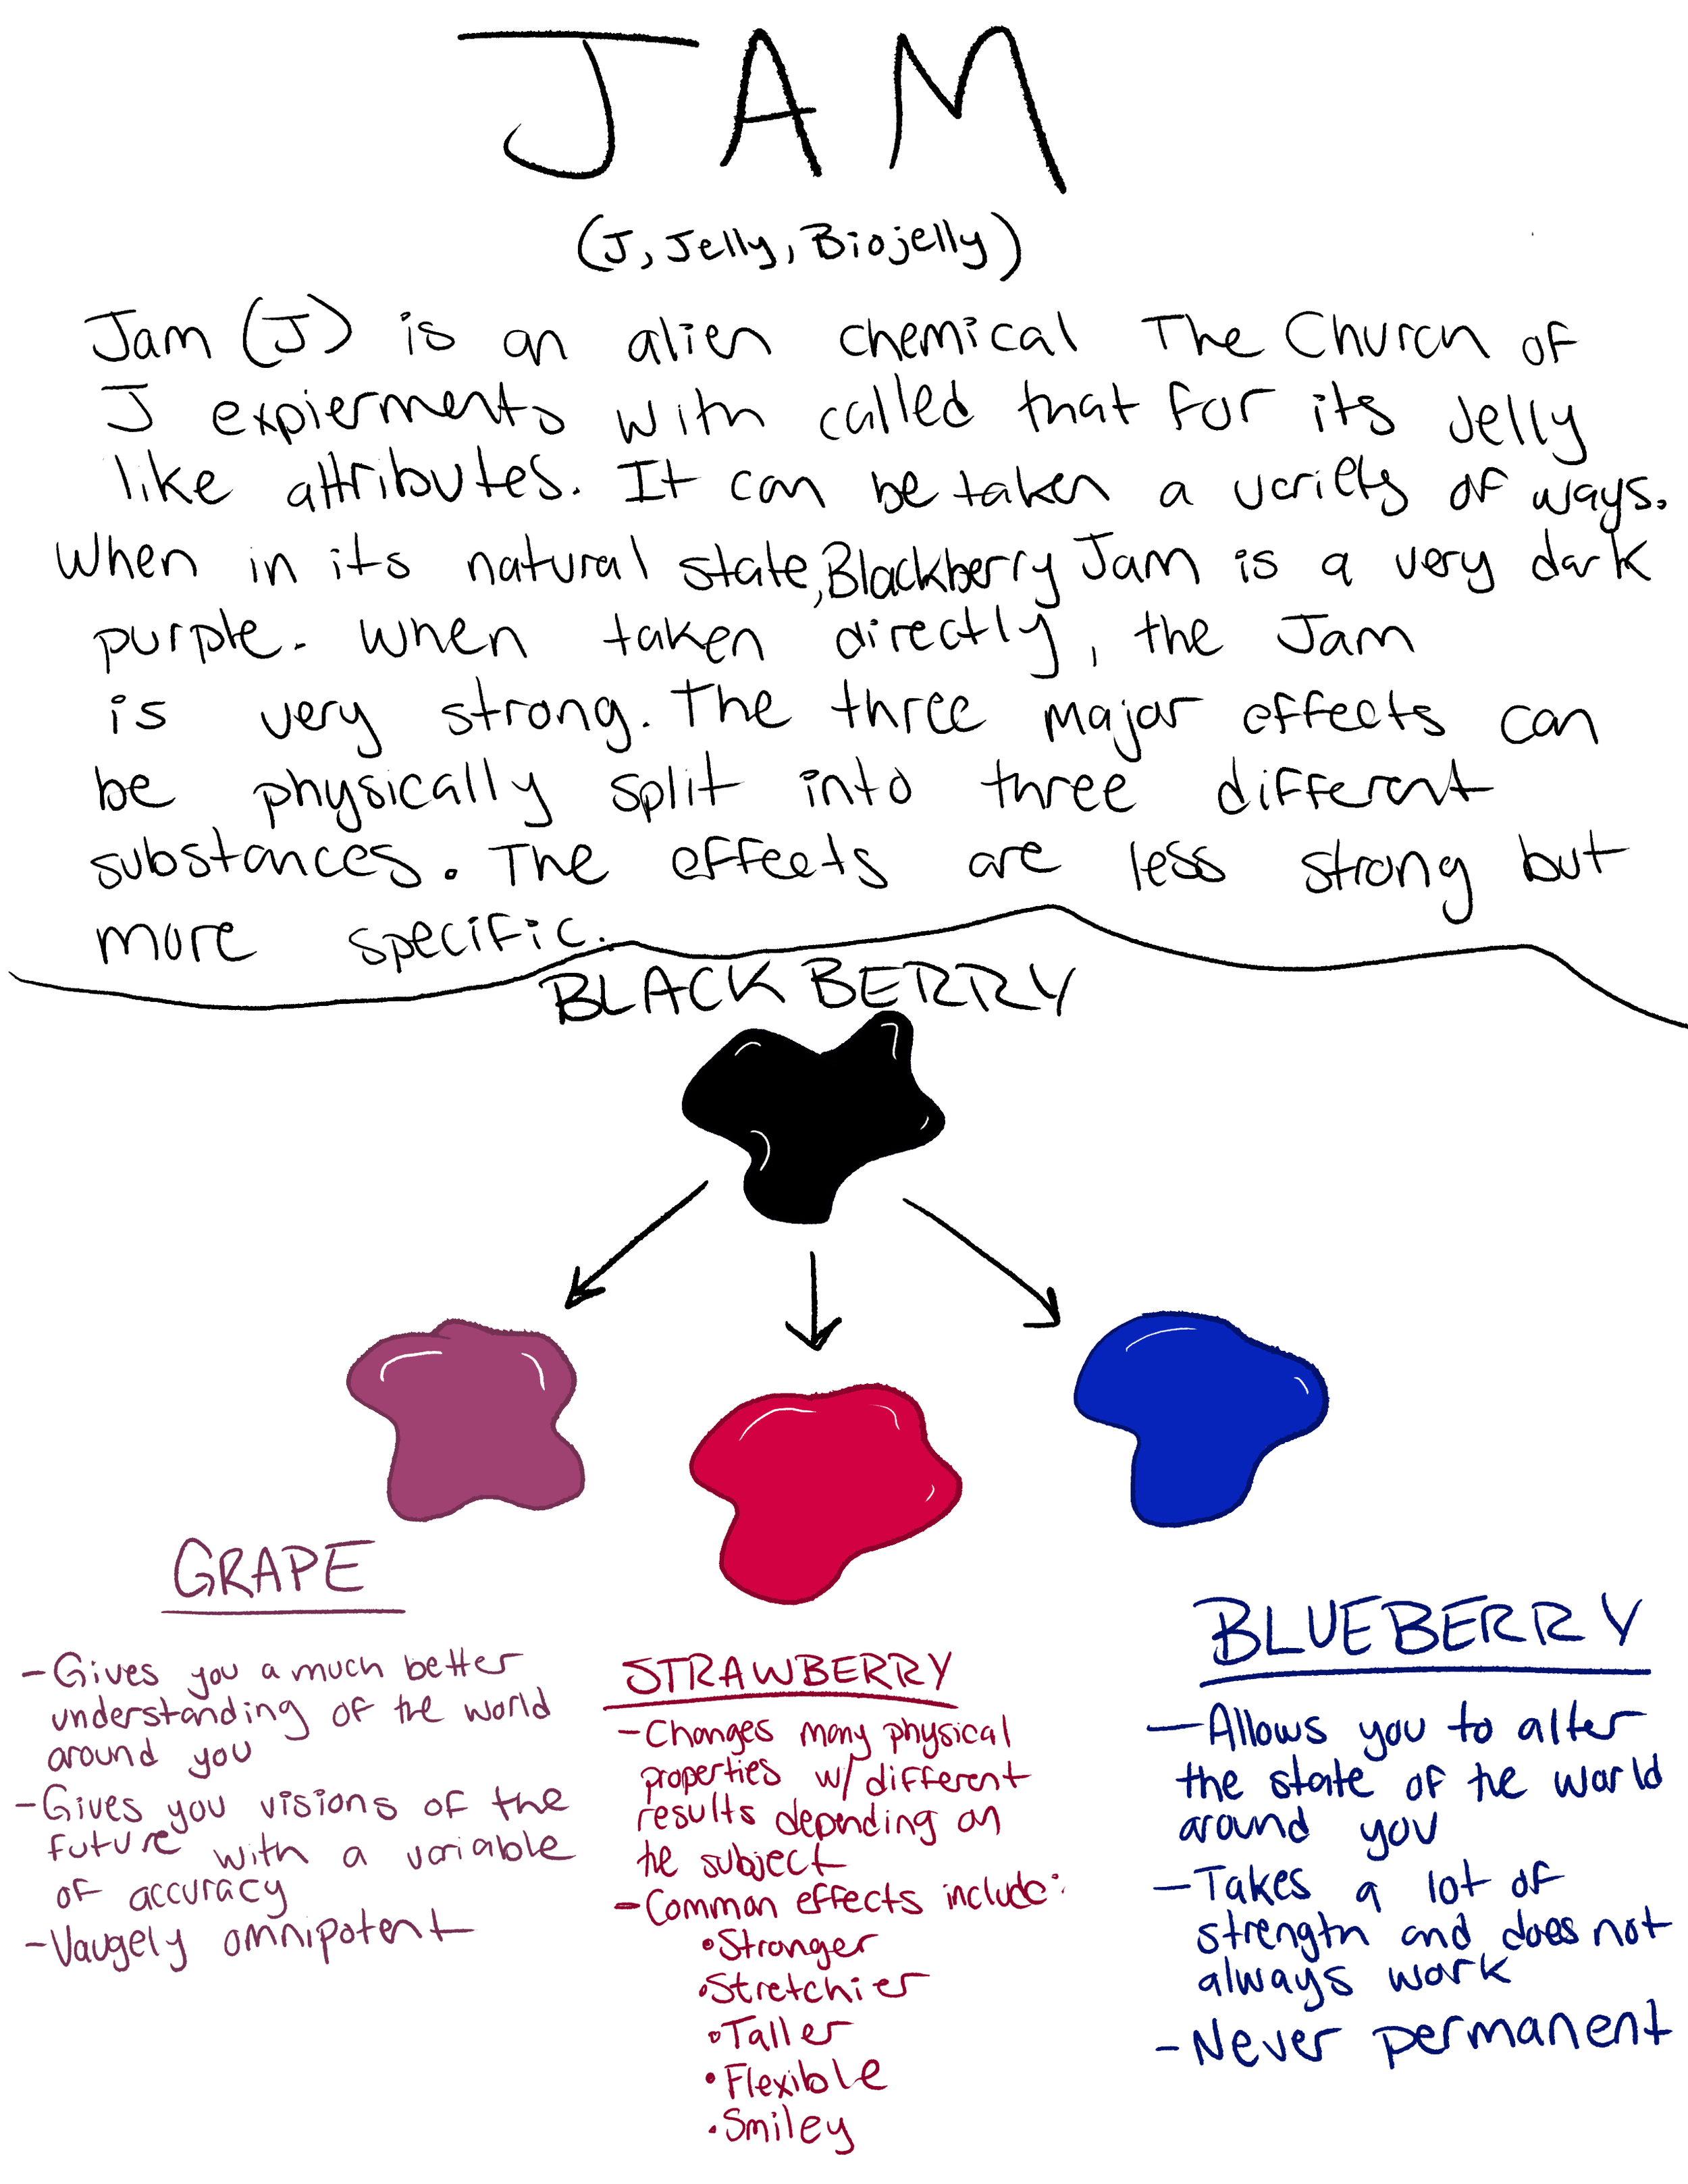 JAM
(J, Jelly, Biojelly)
Jam (J) is an alien chemical The Church of
J expierments with called that for its Jelly
like attributes. It can be taken a variety of ways.
When in its natural state, Blackberry Jam is a very dark
purple. When taken directly, the Jam
is very strong. The three major effects can
be physically split into three different
substances. The effects are less strong but
more specific.
BLACKBERRY
GRAPE
-Gives you a much better
understanding of the world
around you
-Gives you visions of the
future with a variable
of accuracy
-Vaugely omnipotent
STRAWBERRY
-Changes many physical
properties w/ different
results depending on
the subject
-Common effects include:
•Stronger
•Stretchier
•Taller
•Flexible
•Smiley
BLUEBERRY
-Allows you to alter
the state of the world
around you
-Takes a lot of
strength and does not
always work
-Never permanent